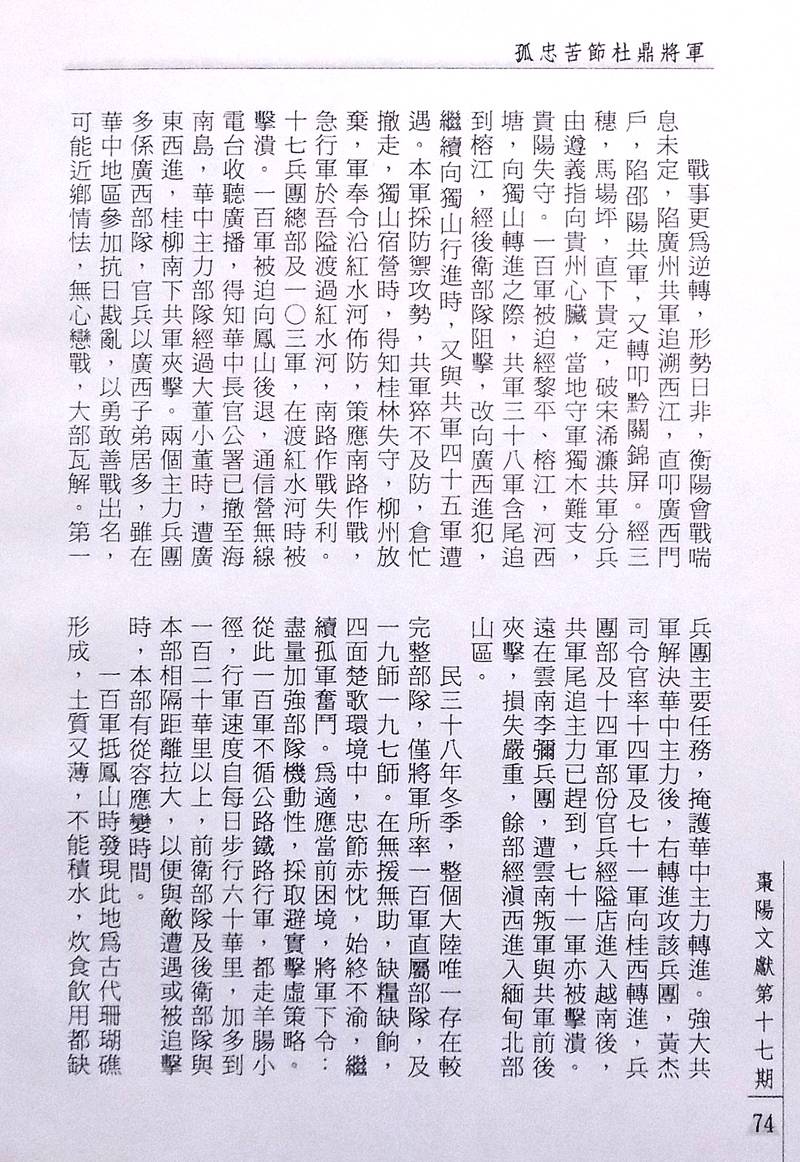 孤忠苦節杜鼎將軍
戰事更為逆轉，形勢日非，衡陽會戰喘
息未定，陷廣州共軍追溯西江，直叩廣西門
戶，陷邵陽共軍，又轉叩黔關錦屏。經三
穗，馬場坪，直下貴定，破宋浠濂共軍分兵
由遵義指向貴州心臟，當地守軍獨木難支，
貴陽失守。一百軍被迫經黎平、榕江，河西
塘，向獨山轉進之際，共軍三十八軍含尾追
到榕江，經後衛部隊阻擊，改向廣西進犯，
繼續向獨山行進時，又與共軍四十五軍遭
遇。本軍採防禦攻勢，共軍猝不及防，倉忙
撤走，獨山宿營時，得知桂林失守，柳州放
棄，軍奉令沿紅水河佈防，策應南路作戰，
急行軍於吾隘渡過紅水河，南路作戰失利。
十七兵團總部及一〇三軍，在渡紅水河時被
擊潰。一百軍被迫向鳳山後退，通信營無線
電台收聽廣播，得知華中長官公署已撤至海
南島，華中主力部隊經過大董小董時，遭廣
東西進，桂柳南下共軍夾擊。兩個主力兵團
多係廣西部隊，官兵以廣西子弟居多，雖在
華中地區參加抗日戡亂，以勇敢善戰出名，
可能近鄉情怯，無心戀戰，大部瓦解。第一
兵團主要任務，掩護華中主力轉進。強大共
軍解決華中主力後，右轉進攻該兵團，黃杰
司令官率十四軍及七十一軍向桂西轉進，兵
團部及十四軍部份官兵經隘店進入越南後，
共軍尾追主力已趕到，七十一軍亦被擊潰。
遠在雲南李彌兵團，遭雲南叛軍與共軍前後
夾擊，損失嚴重，餘部經滇西進入緬甸北部
山區。
民三十八年冬季，整個大陸唯一存在較
完整部隊，僅將軍所率一百軍直屬部隊，及
一九師一九七師。在無援無助，缺糧缺餉，
四面楚歌環境中，忠節赤忱，始終不渝，繼
續孤軍奮鬥。為適應當前困境，將軍下令：
盡量加強部隊機動性，採取避實擊虛策略。
從此一百軍不循公路鐵路行軍，都走羊腸小
徑，行軍速度自每日步行六十華里，加多到
一百二十華里以上，前衛部隊及後衛部隊與
本部相隔距離拉大，以便與敵遭遇或被追擊
時，本部有從容應變時間。
一百軍抵鳳山時發現此地為古代珊瑚礁
形成，土質又薄，不能積水，炊食飲用都缺
棗陽文獻第十七期
74